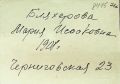 Бляхерова
Мария Исааковна
1901г.
Черниговская 23